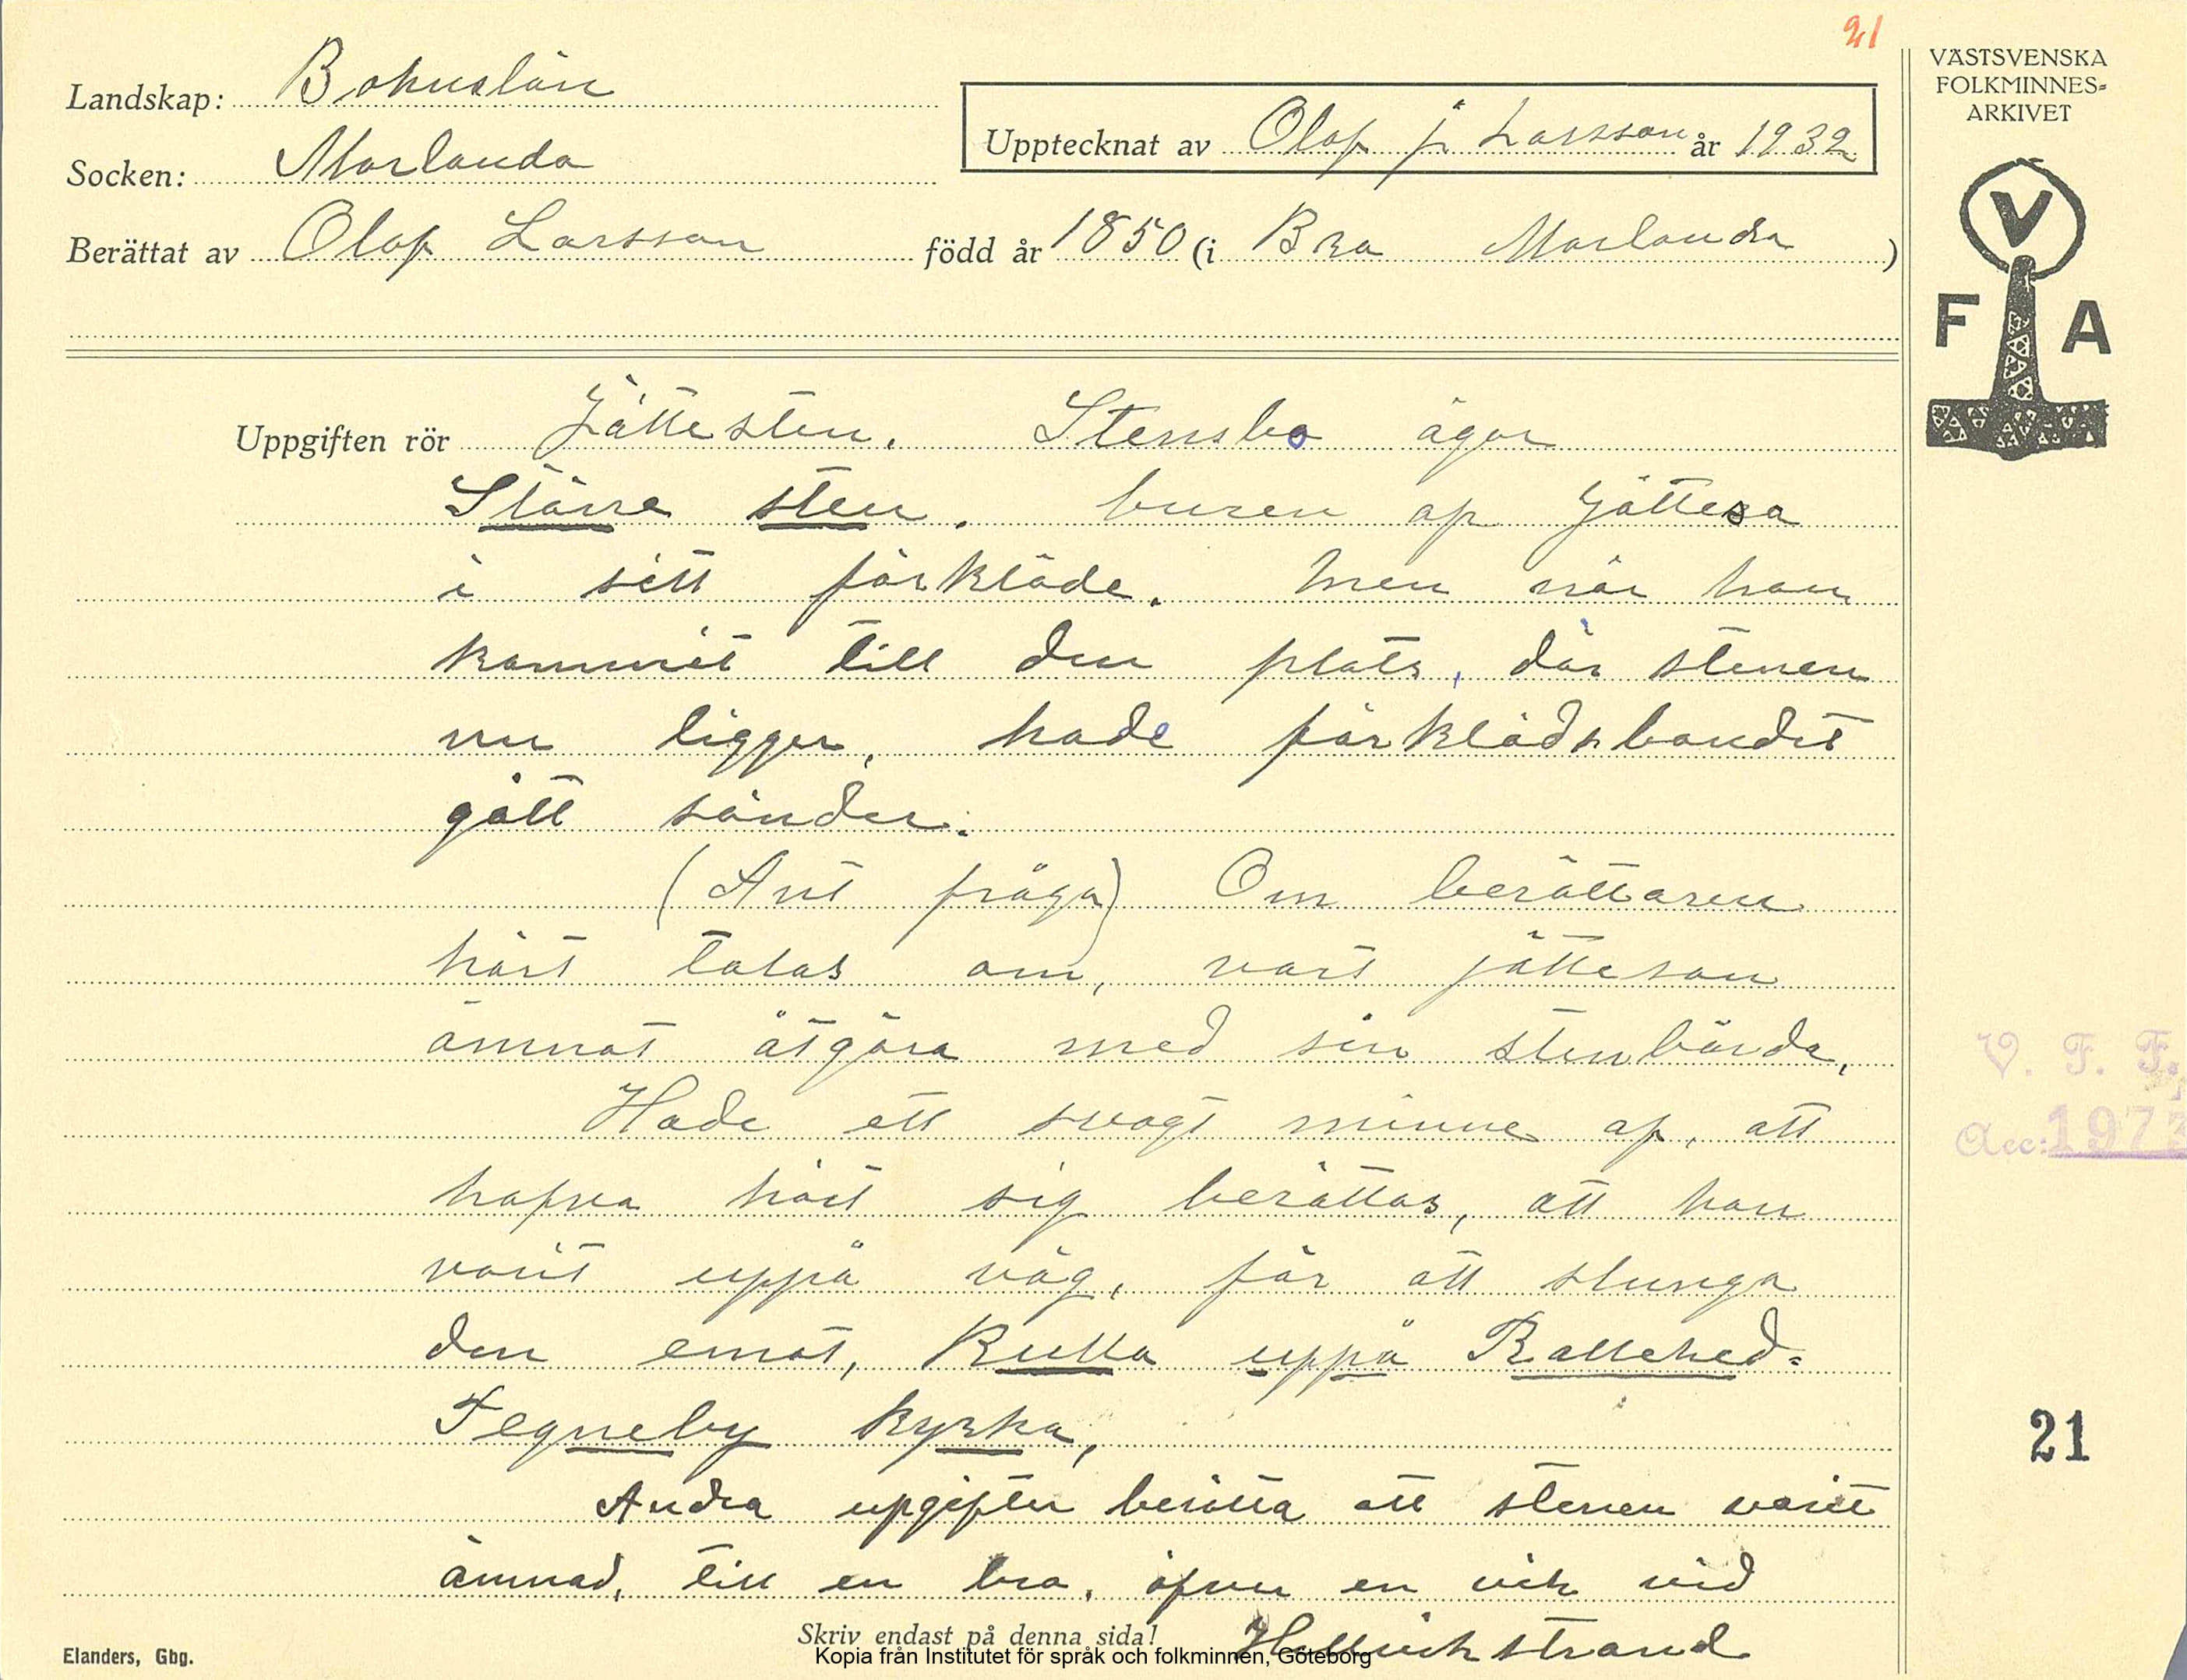 21
VÄSTSVENSKA
FOLKMINNES-
ARKIVET
Landskap: Bohuslän
Upptecknat av Olof J Larsson år 1932
Socken: Morlanda
Berättat av Olof Larsson född år 1850 (i Bra Morlanda)
V
F A
Uppgiften rör Jättesten. Stensbo ägor
Större sten. buren af Jättesa
i sitt förkläde. Men når han
kommit till den plats, där stenen
nu ligger, hade förklädsbandet
gått sönder.
(Ant fråga) Om berättaren
hört talas om, vart jätteson
ämnat åtgöra med sin stenbörda,
Hade ett svagt minne af, att
hafva hört sig berättas, att han
varit uppå väg, för att slunga
den emot, Kulla uppå Rallehed-
Tegneby kyrka,
Andra upgifter berätta att stenen varit
ämnad, till en bro, öfver en vik vid
strand
V. F. F.
Acc: 197
21
Skriv endast på denna sida!
Kopia från Institutet för språk och folkminnen, Göteborg
Elanders, Gbg.